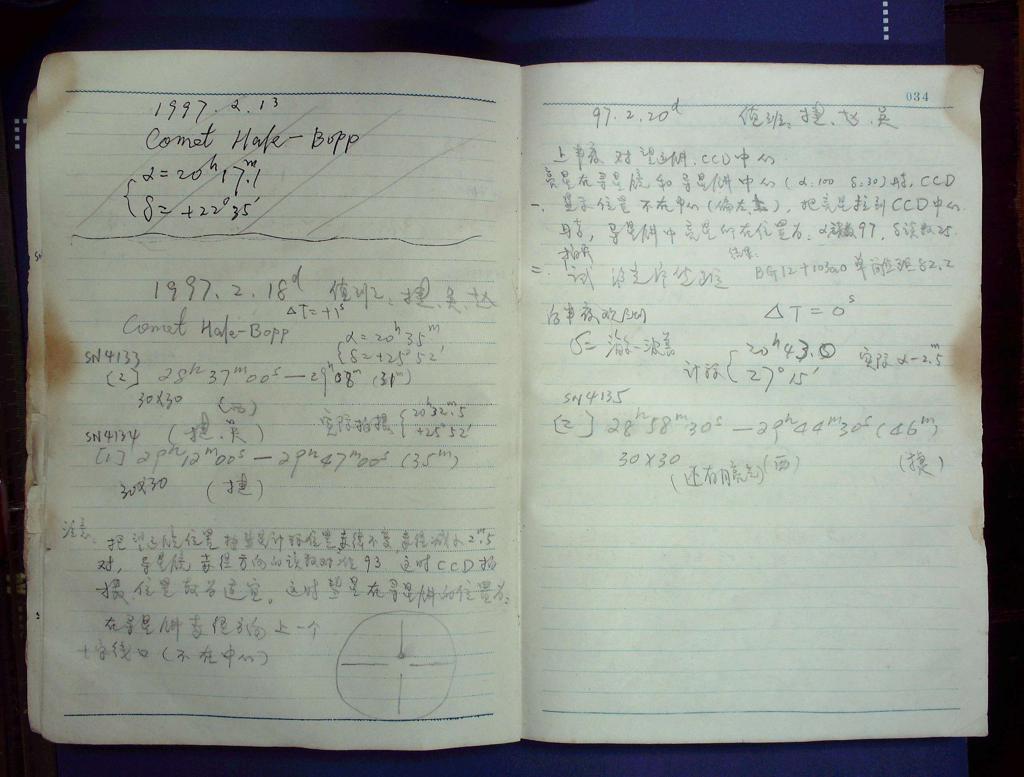 1997.2.13
Comet Hale-Bopp
α=20ʰ17ᵐ.1
δ=+22°35′
1997.2.18ᵈ 值班: 捷.吴.赵
ΔT=+1ˢ
Comet Hale-Bopp
α=20ʰ35ᵐ
δ=+25°52′
SN4133
[2] 28ʰ37ᵐ00ˢ—29ʰ08ᵐ (31ᵐ)
30×30 (西)
实际拍摄 20ʰ32ᵐ.5
+25°52′
SN4134 (捷.吴)
[1] 29ʰ12ᵐ00ˢ—29ʰ47ᵐ00ˢ (35ᵐ)
30×30 (捷)
注意: 把望远镜位置 计算位置赤纬不变赤经减小2ᵐ.5
对, 导星镜赤经方向的读数对准93 这时CCD拍
摄位置较为适宜. 这时 星在导星镜的位置为:
在导星镜赤经方向上一个
十字线口 (不在中心)
034
97.2.20ᵈ 值班: 捷.赵.吴
上半夜 对望远镜.CCD中心
亮星在寻星镜和导星镜中心(α:100 δ:30)时, CCD
一. 显示位置不在中心(偏左), 把亮星拉到CCD中心
时, 导星镜中亮星所在位置为: α读数97. δ读数25
拍摄 结果:
二. 试 BG12+103aO
后半夜观测 ΔT=0ˢ
海尔-波普
计算 20ʰ43.0
27°15′
实际 α-2ᵐ.5
SN4135
[2] 28ʰ58ᵐ30ˢ—29ʰ44ᵐ30ˢ (46ᵐ)
30×30 (西) (捷)
(还有月亮光)